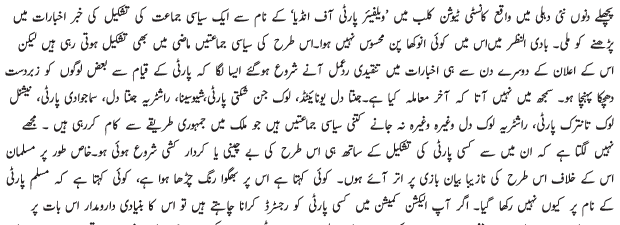 پچھلے دنوں نئی دہلی میں واقع کانسٹی ٹیوشن کلب میں 'ویلفیئر پارٹی آف انڈیا' کے نام سے ایک سیاسی جماعت کی تشکیل کی خبر اخبارات میں
پڑھنے کو ملی۔ بادی النظر میں اس میں کوئی انوکھا پن محسوس نہیں ہوا۔اس طرح کی سیاسی جماعتیں ماضی میں بھی تشکیل ہوتی رہی ہیں لیکن
اس کے اعلان کے دوسرے دن سے ہی اخبارات میں تنقیدی ردعمل آنے شروع ہوگئے ایسا لگا کہ پارٹی کے قیام سے بعض لوگوں کو زبردست
دھچکا پہنچا ہو۔ سمجھ میں نہیں آتا کہ آخر معاملہ کیا ہے۔جنتا دل یونائیٹڈ، لوک جن شکتی پارٹی،شیوسینا، راشٹریہ جنتا دل، سماجوادی پارٹی، نیشنل
لوک تانترک پارٹی، راشٹریہ لوک دل وغیرہ وغیرہ نہ جانے کتنی سیاسی جماعتیں ہیں جو ملک میں جمہوری طریقے سے کام کررہی ہیں ۔ مجھے
نہیں لگتا ہے کہ ان میں سے کسی پارٹی کی تشکیل کے ساتھ ہی اس طرح کی بے چینی یا کردار کشی شروع ہوئی ہو۔خاص طور پر مسلمان
اس کے خلاف اس طرح کی نازیبا بیان بازی پر اتر آئے ہوں۔ کوئی کہتا ہے اس پر بھگوا رنگ چڑھا ہوا ہے، کوئی کہتا ہے کہ مسلم پارٹی
کے نام پر کیوں نہیں رکھا گیا۔ اگر آپ الیکشن کمیشن میں کسی پارٹی کو رجسٹرڈ کرانا چاہتے ہیں تو اس کا بنیادی دارومدار اس بات پر